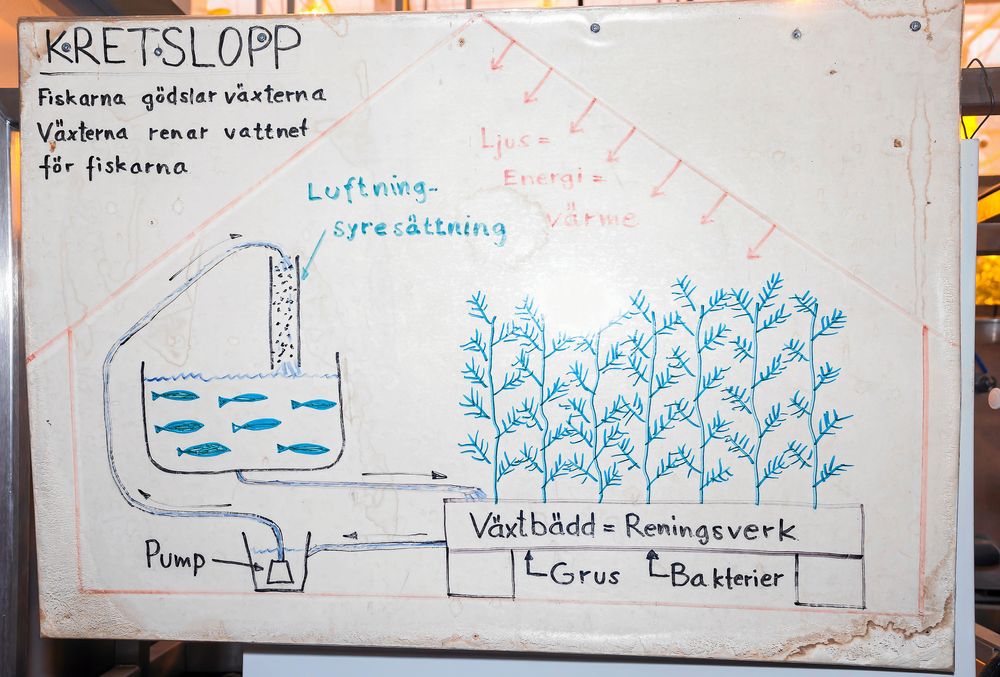 KRETSLOPP
Fiskarna gödslar växterna
Växterna renar vattnet
för fiskarna
Luftning-
syresättning
Ljus =
Energi =
värme
Växtbädd = Reningsverk
Pump
Grus
Bakterier